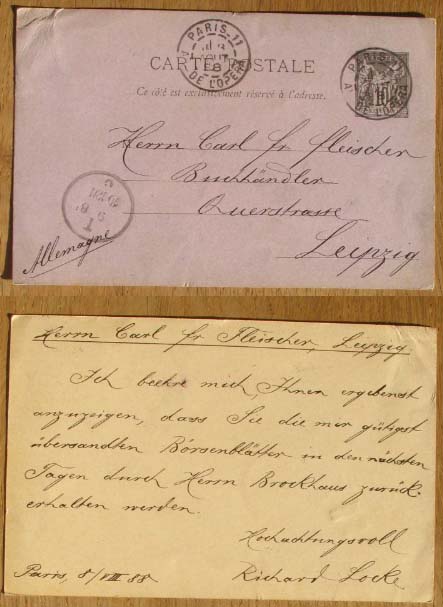 PARIS 11
AOUT
88
AV DE L'OPERA
CARTE POSTALE
Ce côté est exclusivement réservé à l'adresse.
PARIS 11
AV DE L'OPERA
10
Herrn Carl Fr Fleischer
Buchhändler
Querstrasse
Leipzig
Allemagne
Herrn Carl Fr Fleischer, Leipzig
Ich beehre mich, Ihnen ergebenst
anzuzeigen, dass Sie die mir gütigst
übersandten Börsenblätter in den nächsten
Tagen durch Herrn Brockhaus zurück-
erhalten werden.
Hochachtungsvoll
Paris, 8/VIII 88 Richard Locke